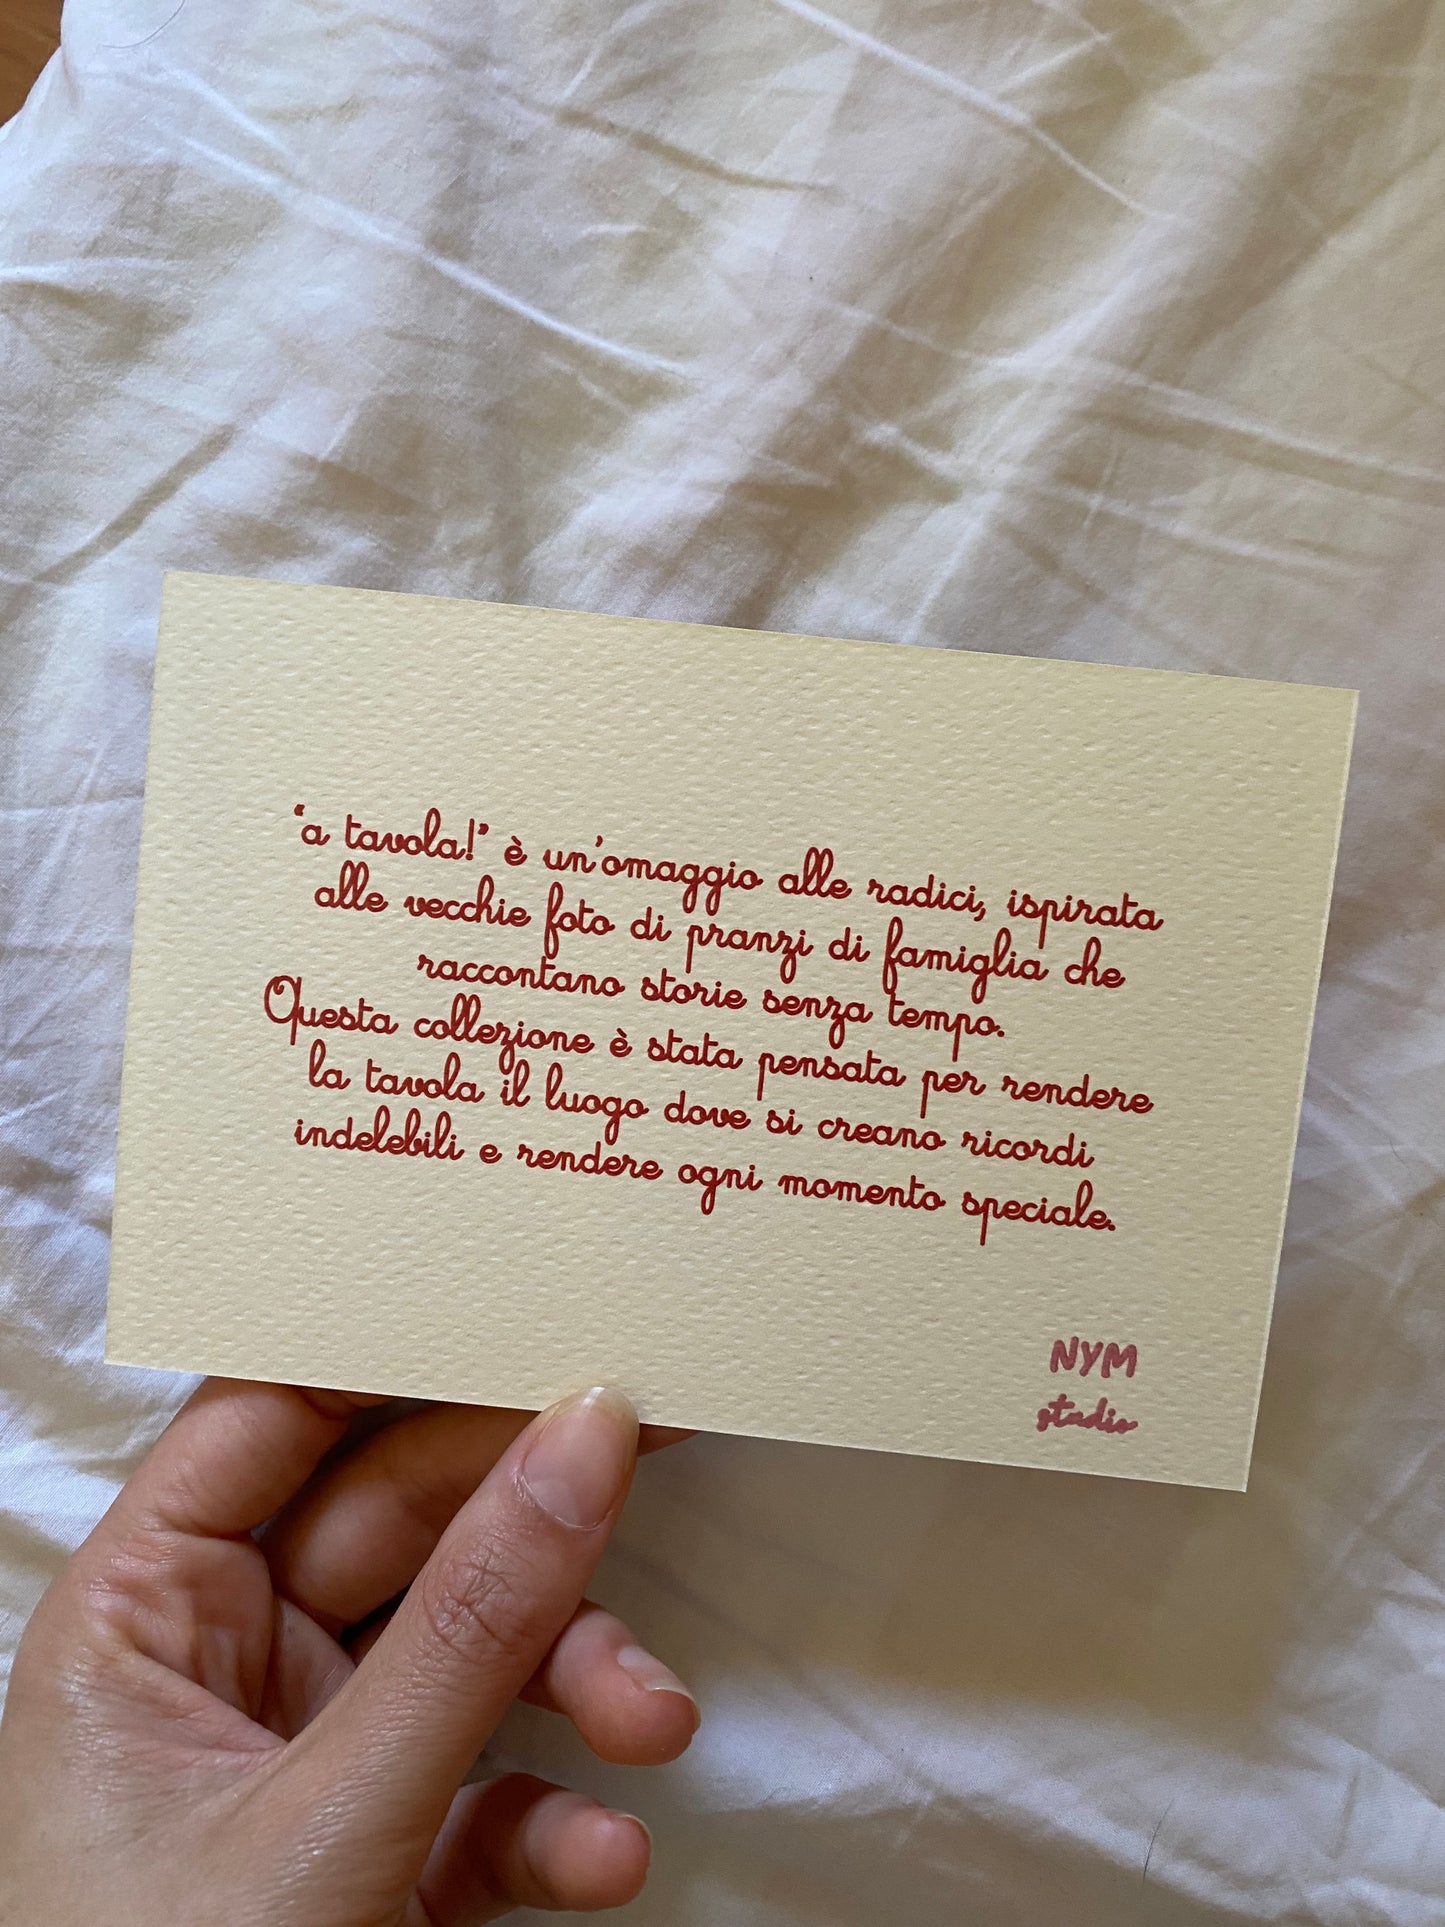 “a tavola!” è un’omaggio alle radici, ispirata
alle vecchie foto di pranzi di famiglia che
raccontano storie senza tempo.
Questa collezione è stata pensata per rendere
la tavola il luogo dove si creano ricordi
indelebili e rendere ogni momento speciale.
NYM
studio